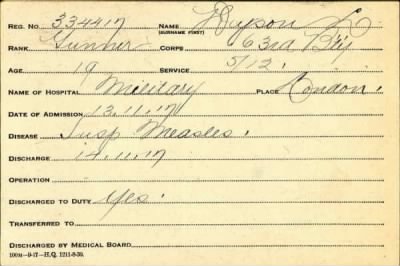 REG. NO. 334417 NAME Dyson L
(SURNAME FIRST)
RANK Gunner CORPS 63rd Bty
AGE 19 SERVICE 5/12
NAME OF HOSPITAL Military PLACE London
DATE OF ADMISSION 13.11.17
DISEASE Susp Measles
DISCHARGE 14.11.17
OPERATION
DISCHARGED TO DUTY Yes
TRANSFERRED TO
DISCHARGED BY MEDICAL BOARD
100M-9-17-H.Q. 1211-8-39.